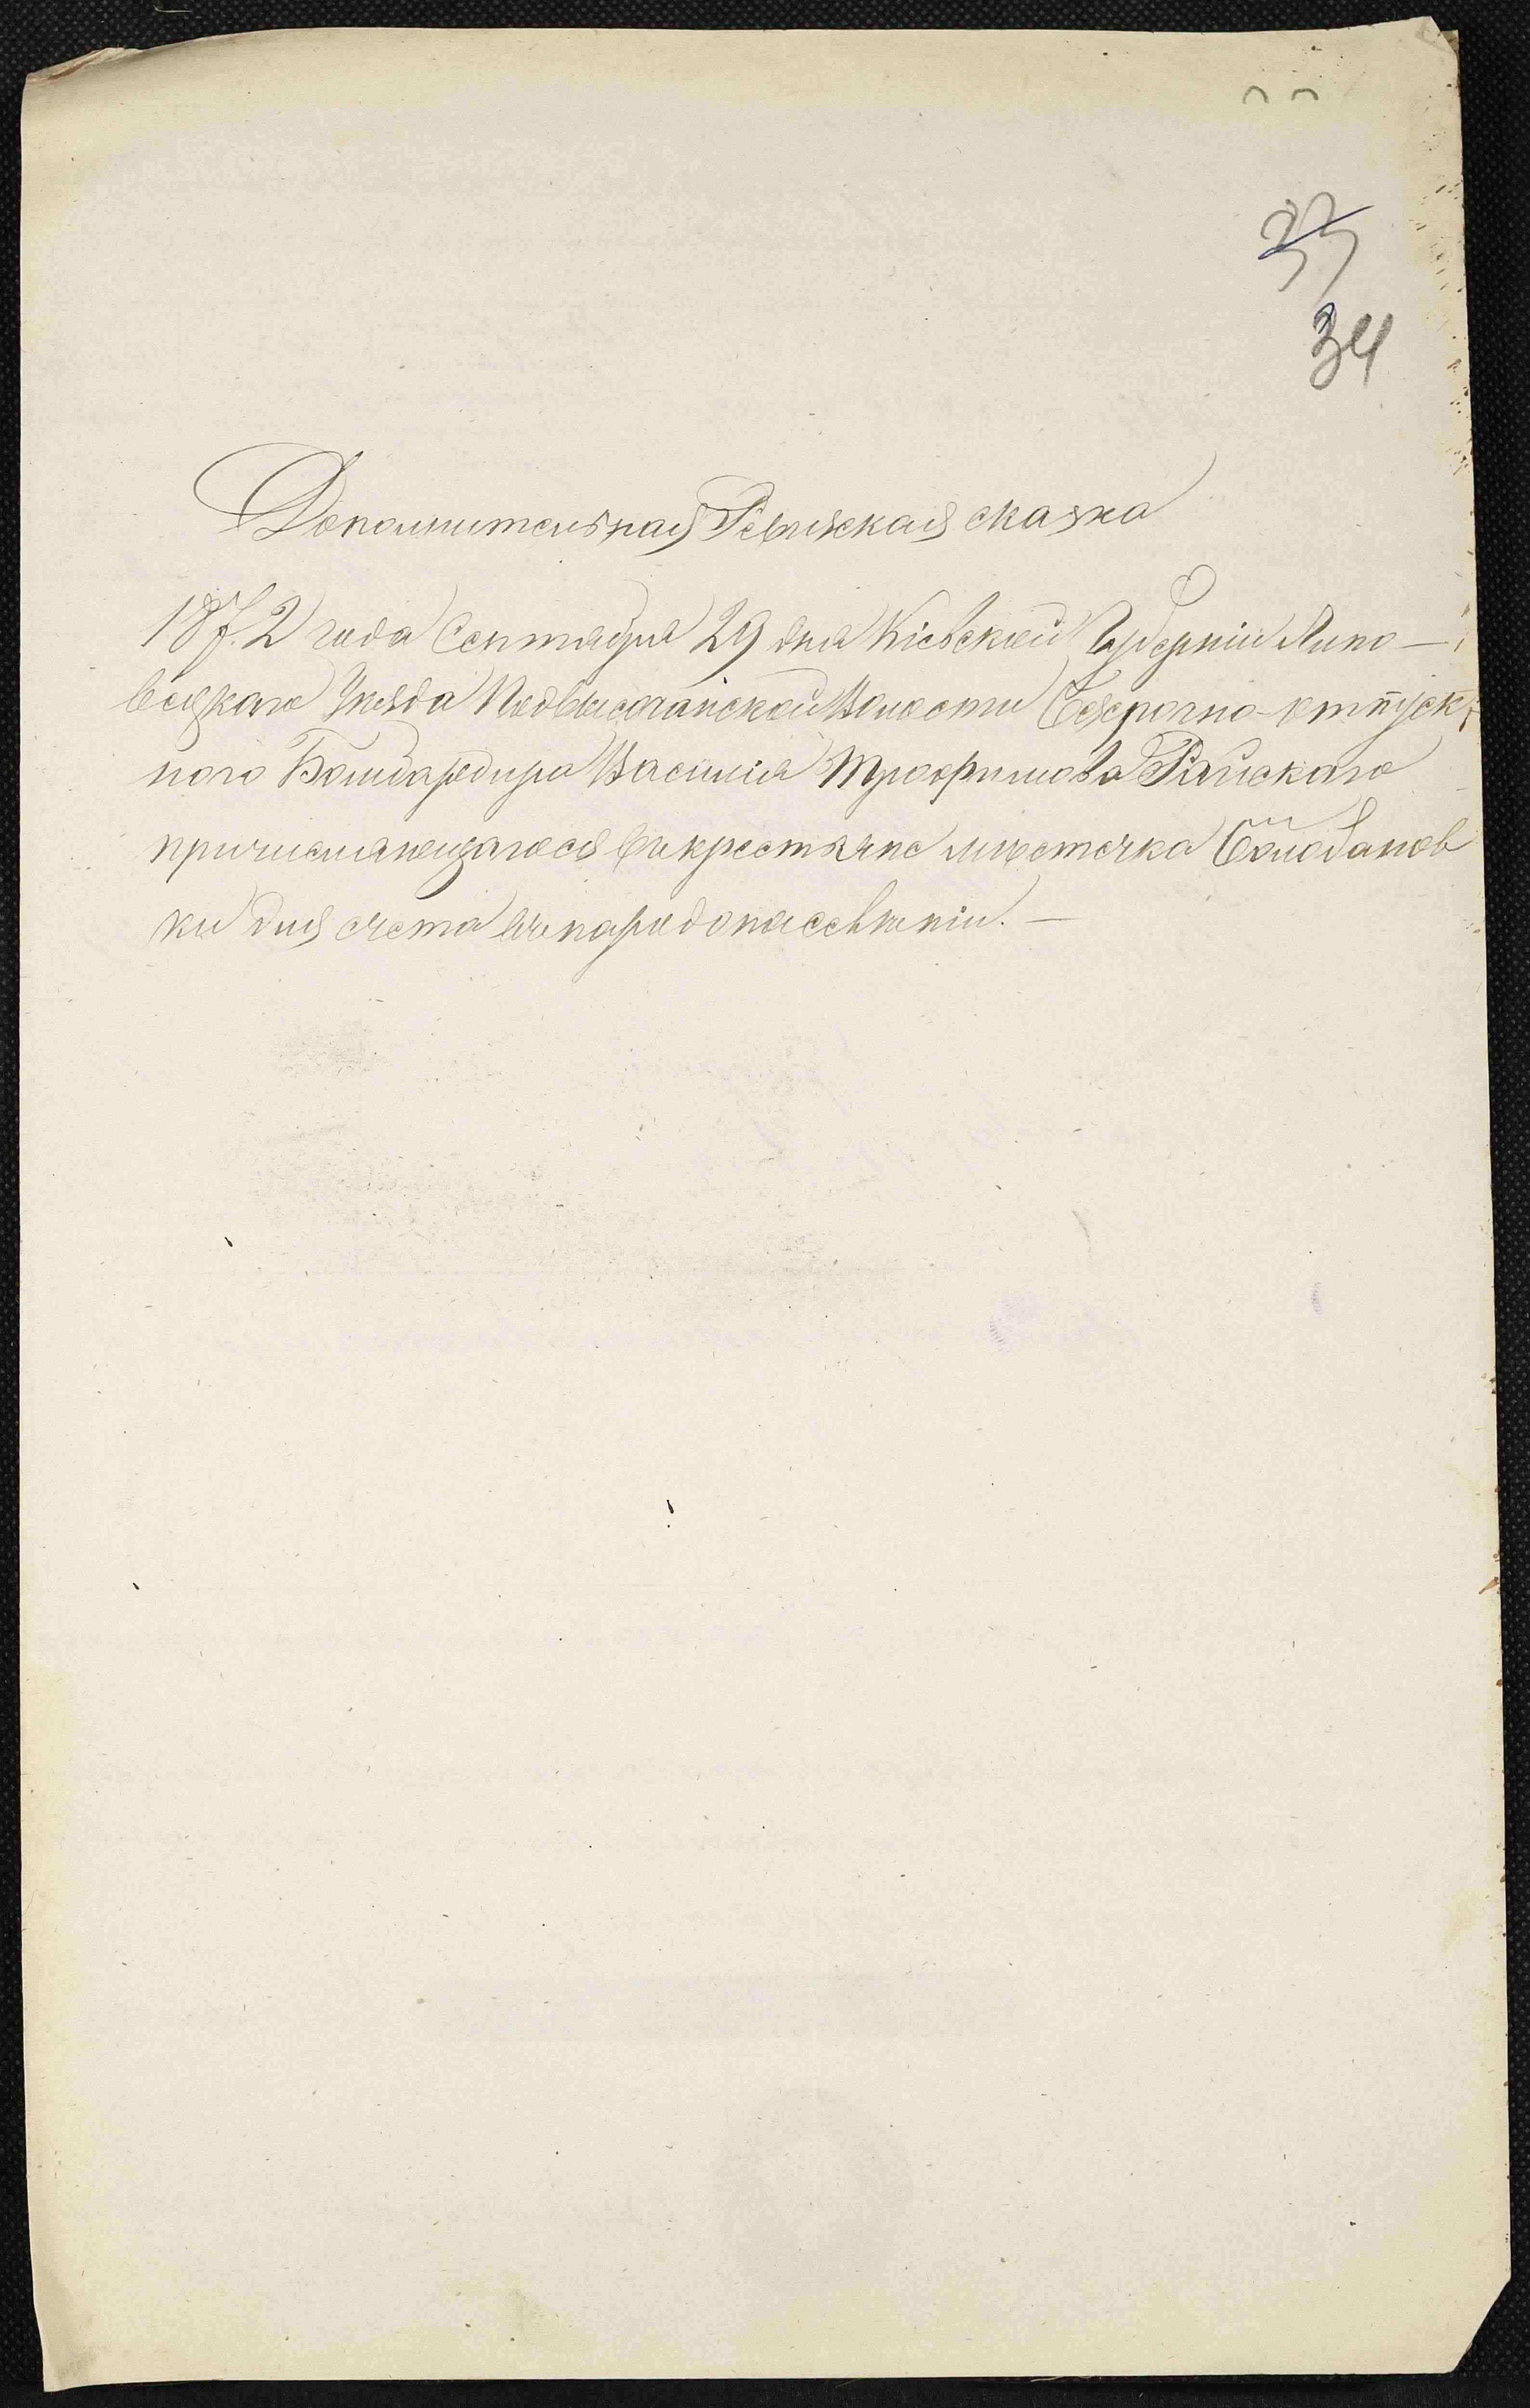 33
34
Дополнительная Ревизская сказка
1872 года Сентября 29 дня Кіевской Губерніи Липо-
вецкаго Уѣзда Подвысоцкой Волости Безсрочно-отпуск
ного Бомбардира Василія Трофимова Райскаго
причисляющагося въ крестьяне мѣстечка
ки для счета въ народонаселеніи. —